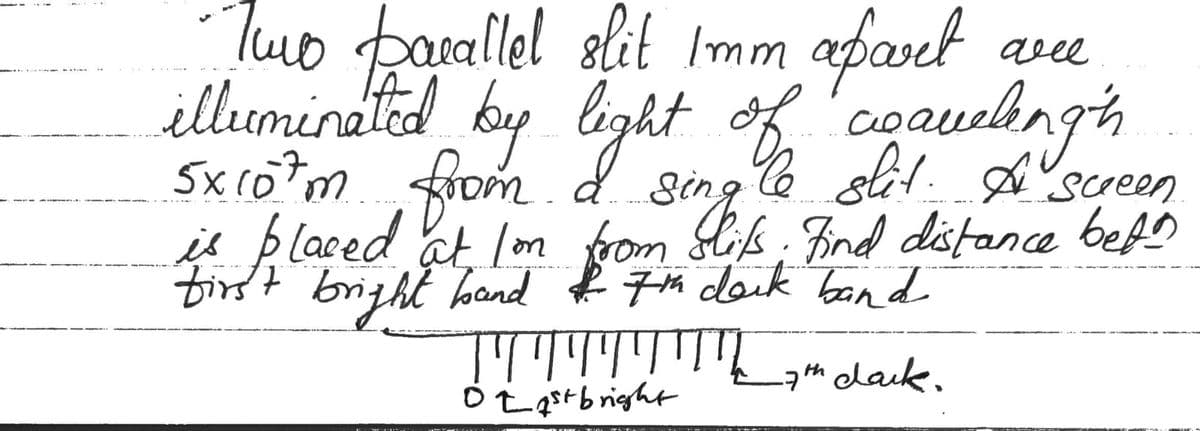 Two parallel slit 1mm apart are
illuminated by light of wavelength
5x10⁻⁷m from a single slit. A screen
is placed at 1m from slits. Find distance betn
first bright band & 7th dark band
0 1st bright 7th dark.